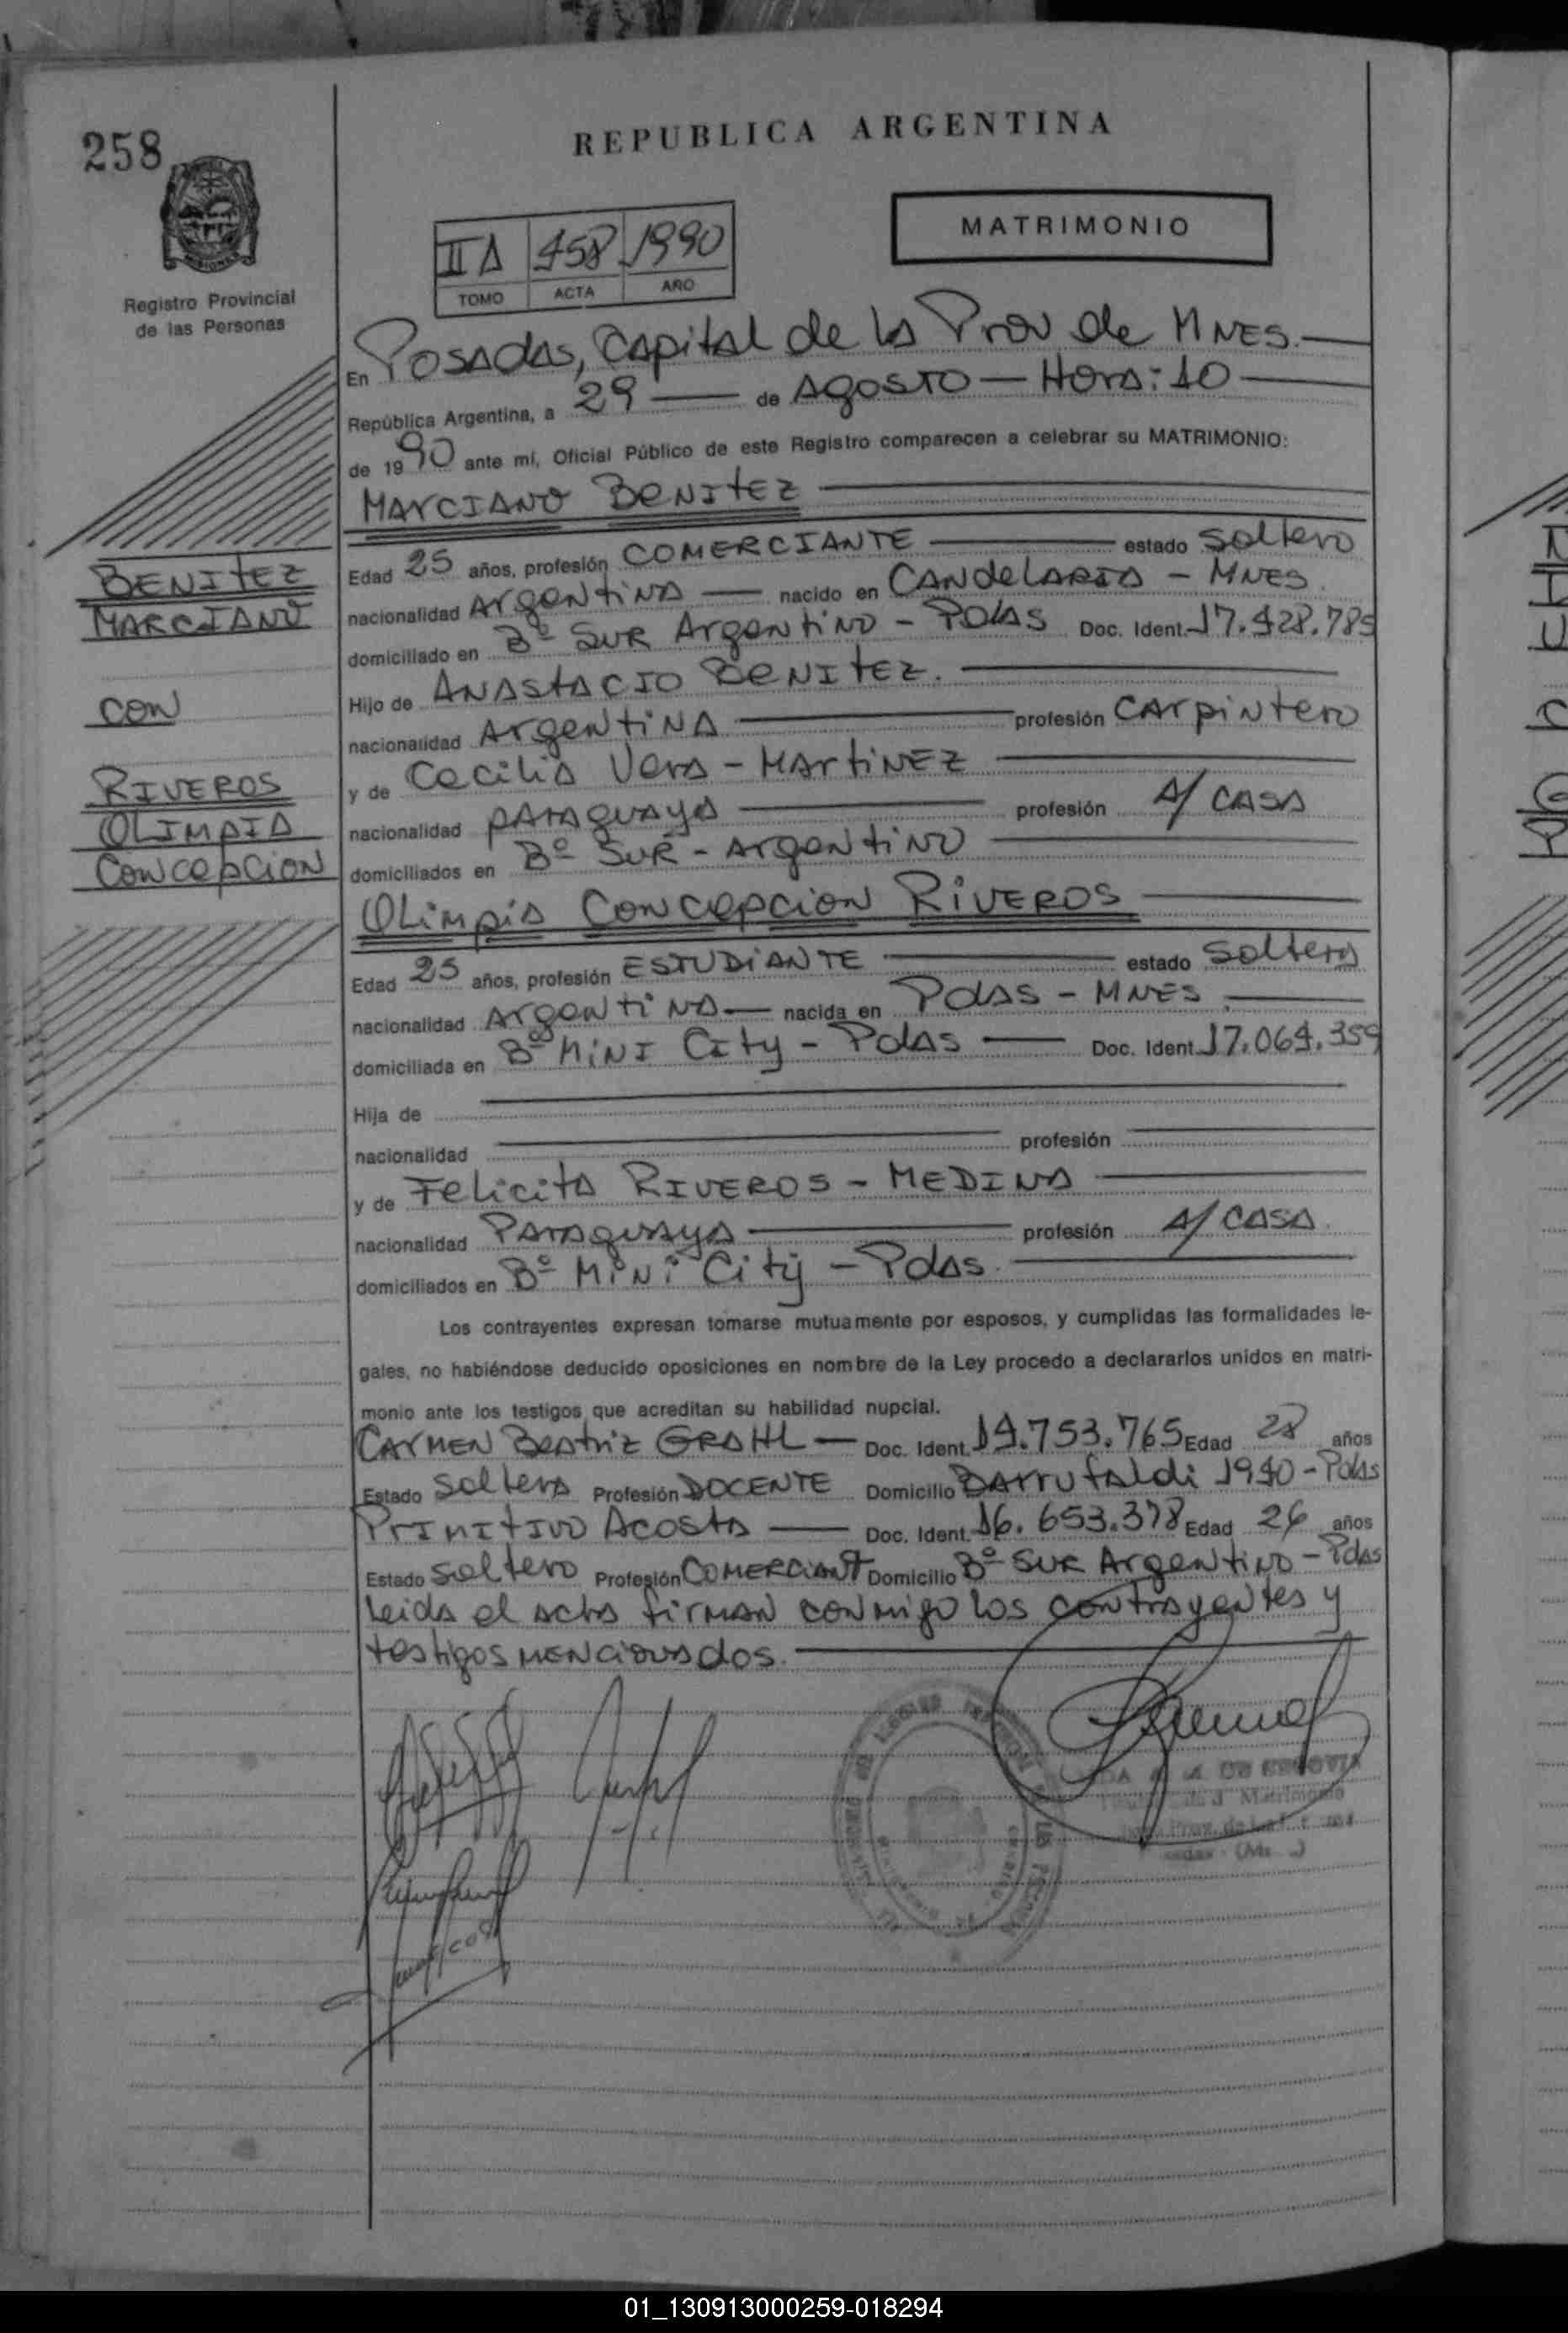 258
REPUBLICA ARGENTINA
MATRIMONIO
II A 458 1990
TOMO ACTA AÑO
Registro Provincial
de las Personas
En Posadas, Capital de la Prov de MNES.
República Argentina, a 29 de Agosto - Hora: 10
de 1990 ante mí, Oficial Público de este Registro comparecen a celebrar su MATRIMONIO:
MARCIANO BENITEZ
Edad 25 años, profesión COMERCIANTE estado soltero
nacionalidad Argentina nacido en CANDELARIA - MNES.
domiciliado en Bº SUR Argentino - Pdas Doc. Ident. 17.428.785
Hijo de ANASTACIO BENITEZ.
nacionalidad Argentina profesión Carpintero
y de Cecilia Vera - MARTINEZ
nacionalidad paraguaya profesión A/ CASA
domiciliados en Bº SUR - Argentino
Olimpia Concepcion Riveros
Edad 25 años, profesión ESTUDIANTE estado soltera
nacionalidad Argentina nacida en Pdas - MNES.
domiciliada en Bº MINI City - Pdas Doc. Ident. 17.064.359
Hija de
nacionalidad profesión
y de Felicita RIVEROS - MEDINA
nacionalidad Paraguaya profesión A/ CASA.
domiciliados en Bº Mini City - Pdas.
BENITEZ
MARCIANO
con
RIVEROS
OLIMPIA
Concepcion
Los contrayentes expresan tomarse mutuamente por esposos, y cumplidas las formalidades le-
gales, no habiéndose deducido oposiciones en nombre de la Ley procedo a declararlos unidos en matri-
monio ante los testigos que acreditan su habilidad nupcial.
CARMEN Beatriz GRAHL Doc. Ident. 14.753.765 Edad 28 años
Estado soltera Profesión DOCENTE Domicilio Barrufaldi 1940 - Pdas
PRIMITIVO Acosta Doc. Ident. 16.653.378 Edad 26 años
Estado soltero Profesión COMERCIANT Domicilio Bº SUR Argentino - Pdas
Leida el acta firman conmigo los contrayentes y
testigos mencionados.
DE SEGOVIA
Matrimonio
01_130913000259-018294